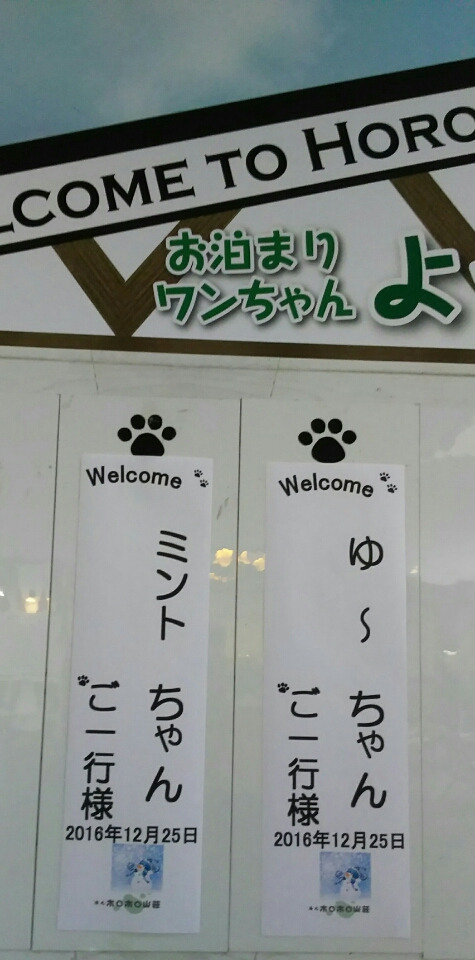 LCOME TO HORO
お泊まり
ワンちゃん よ
Welcome
ミント ちゃん
ご一行様
2016年12月25日
ホロホロ山荘
Welcome
ゆ～ ちゃん
ご一行様
2016年12月25日
ホロホロ山荘